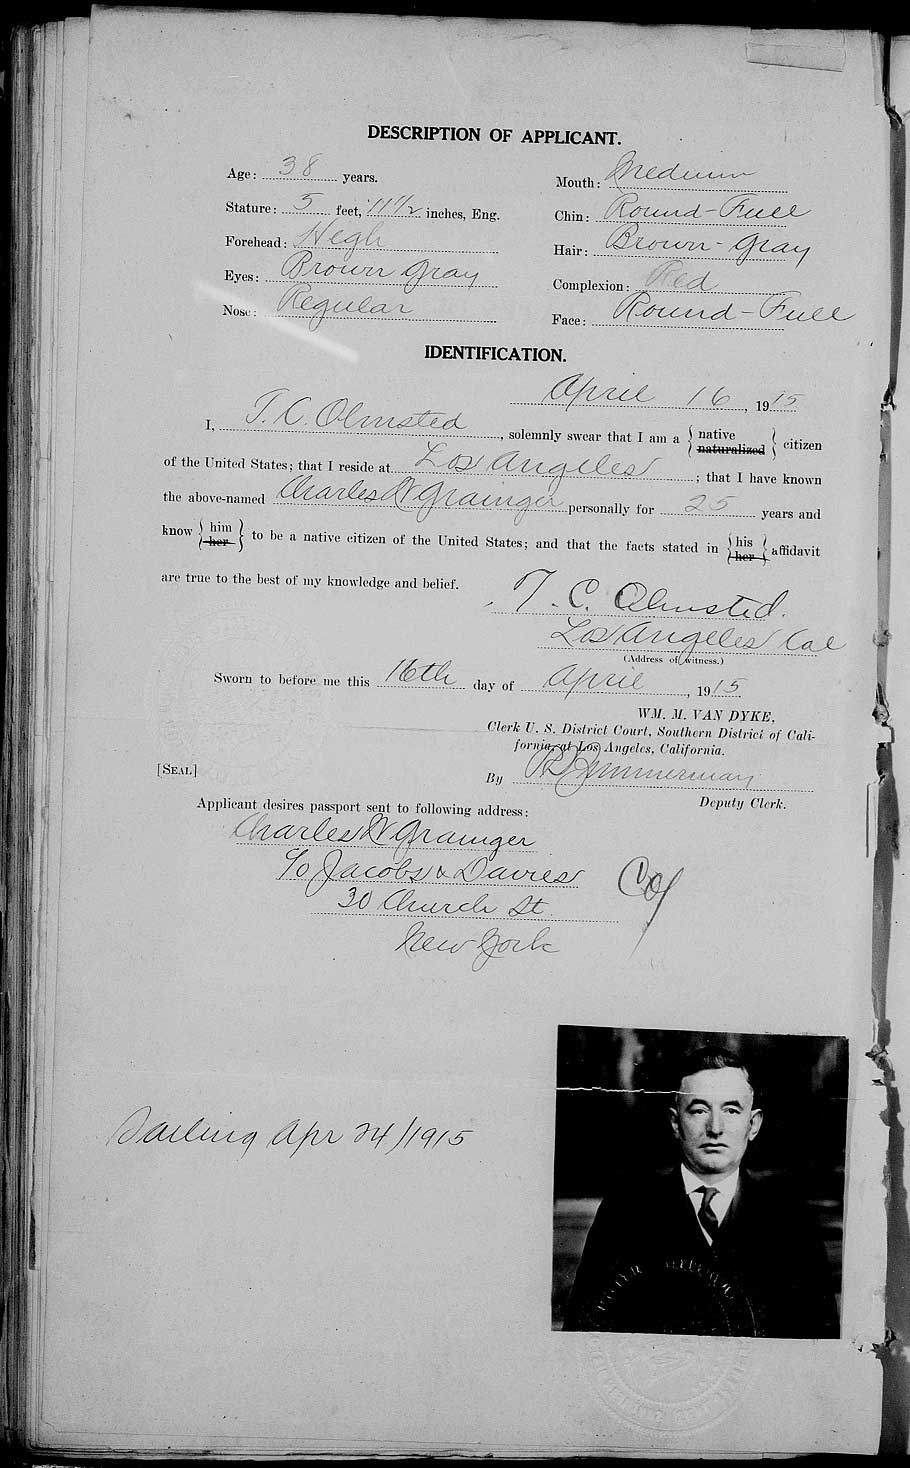 DESCRIPTION OF APPLICANT.
Age: 38 years.
Mouth: Medium
Stature: 5 feet, 11 1/2 inches, Eng.
Chin: Round-Full
Forehead: High
Hair: Brown-Gray
Eyes: Brown Gray
Complexion: Red
Nose: Regular
Face: Round-Full
IDENTIFICATION.
April 16, 1915
I, T. C. Olmsted, solemnly swear that I am a { native naturalized } citizen
of the United States; that I reside at Los Angeles; that I have known
the above-named Charles W Grainger personally for 25 years and
know { him her } to be a native citizen of the United States; and that the facts stated in { his her } affidavit
are true to the best of my knowledge and belief.
T. C. Olmsted.
Los Angeles Cal
(Address of witness.)
Sworn to before me this 16th day of April, 1915
WM. M. VAN DYKE,
Clerk U. S. District Court, Southern District of Cali-
fornia, at Los Angeles, California.
[SEAL]
By Zimmerman
Deputy Clerk.
Applicant desires passport sent to following address:
Charles W Grainger
c/o Jacobs & Davies
30 Church St.
New York
Sailing Apr 24/1915